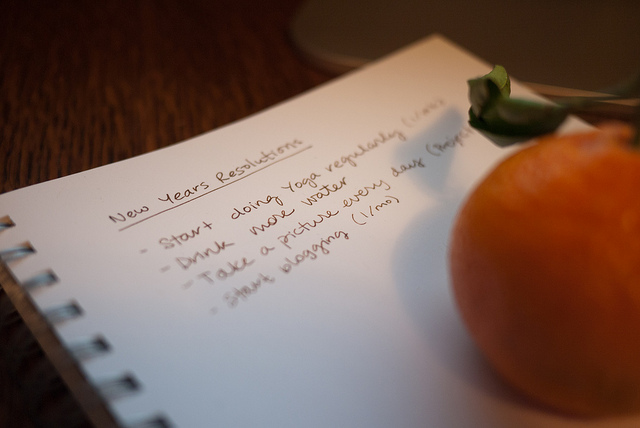 New Years Resolutions
- Start doing Yoga regularly
- Drink more water
- Take a picture every day
- Start blogging (1/mo)